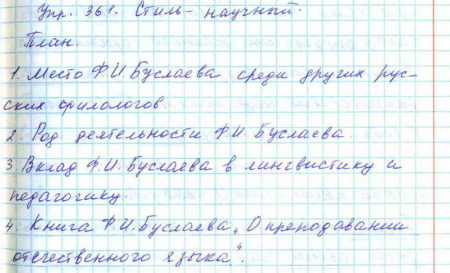 Упр. 361. Стиль - научный.
План.
1. Место Ф.И. Буслаева среди других рус-
ских филологов.
2. Род деятельности Ф.И. Буслаева.
3. Вклад Ф.И. Буслаева в лингвистику и
педагогику.
4. Книга Ф.И. Буслаева „О преподавании
отечественного языка“.